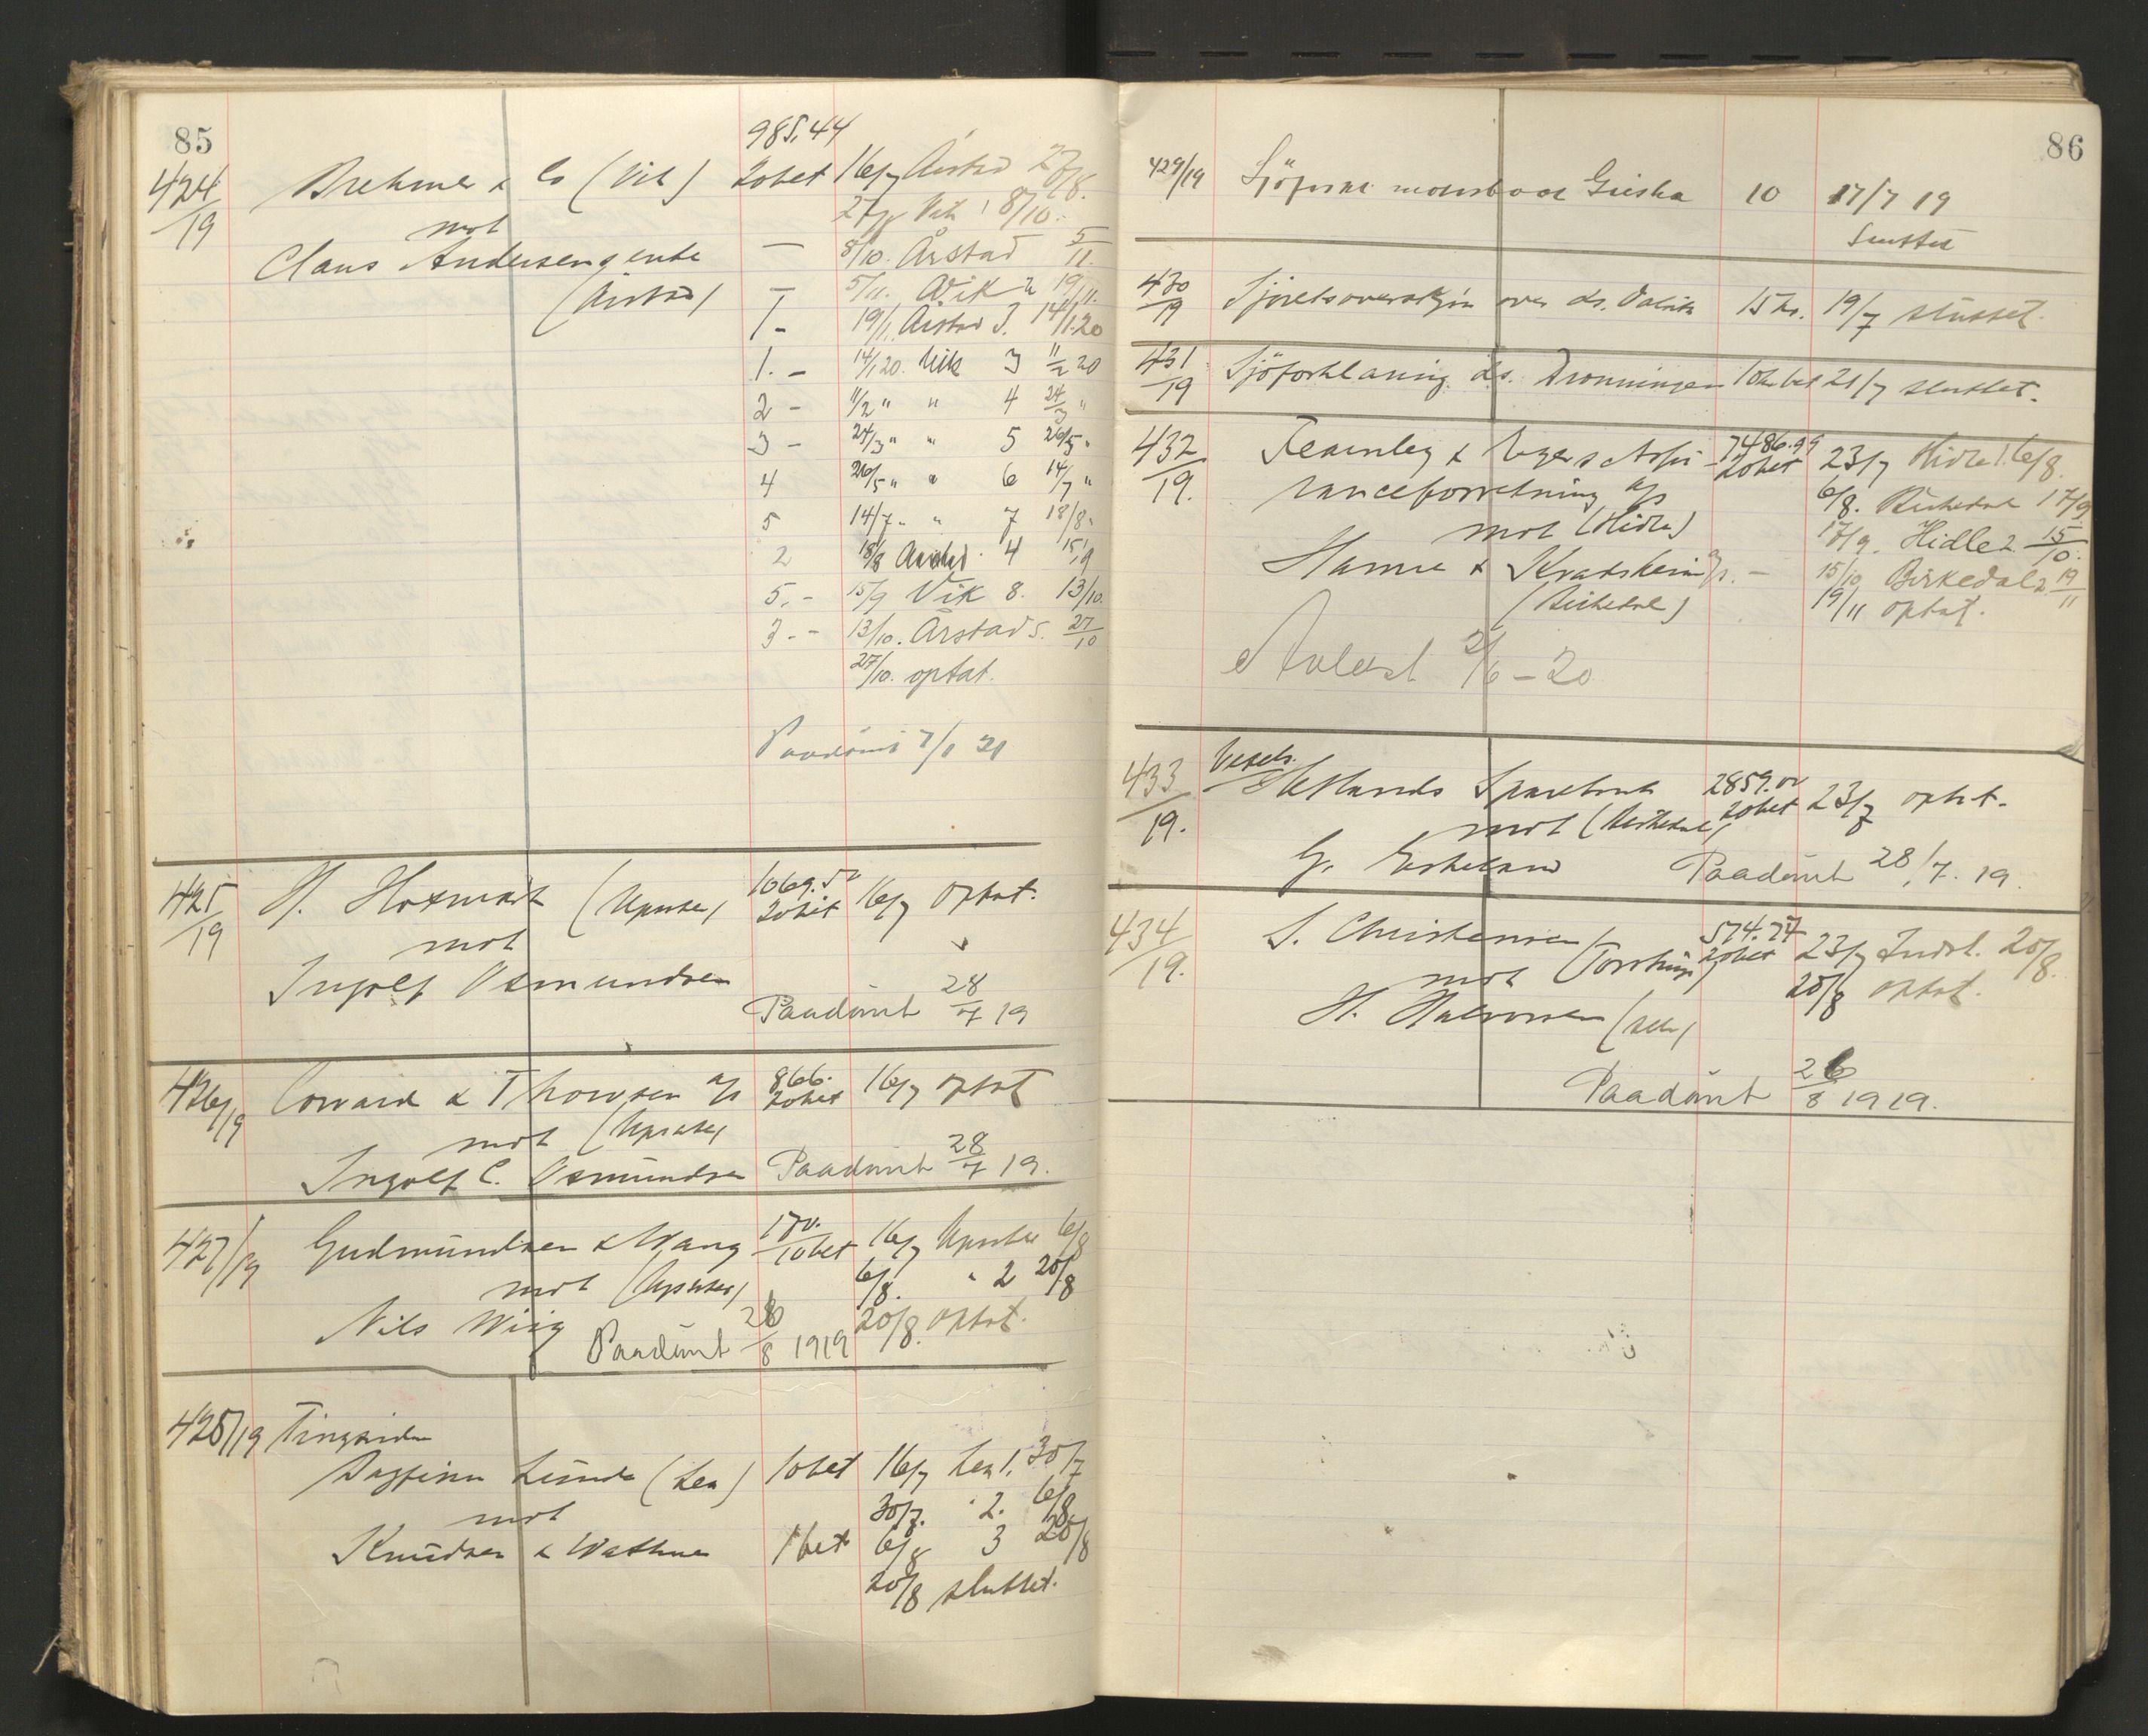 85
985,44
424/19 Brehmer & Co (Vik) 20bet 16/7 Årstad 27/8.
mot 27/8 Vik 1 8/10.
Claus Andersens enke — 8/10. Årstad 5/11.
(Årstad) — 5/11. Vik 2 19/11.
1 - 19/11 Årstad 3. 14/1.20
1. - 14/1 20. Vik 3 11/2 20
2 - 11/2 " " 4 24/3 "
3 - 24/3 " " 5 26/5 "
4 26/5 " " 6 14/7 "
5 14/7 " " 7 18/8 "
2 18/8 Årstad 4 15/9
5. - 15/9 Vik 8. 13/10.
3. - 13/10. Årstad 5. 27/10
27/10. optat.
Paadömt 7/1 21
425/19 H. 1069.52 20bet 16/7 optat.
mot
Ingolf Osmundsen
Paadömt 28/7 19
426/19 Coward & Thowsen A/s 866. 20bet 16/7 optat
mot
Ingolf C. Osmundsen Paadömt 28/7 19.
427/19 Gudmundsen & Wang 170. 10bet 16/7 6/8
mot 6/8. " 2 20/8
Nils Wiig 20/8. optat.
Paadömt 26/8 1919
428/19 Tingsvidne
Dagfinn Lunde (Lea) 10bet 16/7 Lea 1. 30/7
mot 30/7. " 2. 6/8
Knudsen & Wathne 1bet 6/8 3 20/8
20/8 sluttet.
86
429/19 Sjöforkl. motorbaat 10 17/7 19
Sluttet
430/19 over ds. 15 kr. 19/7 sluttet.
431/19 Sjöforklaring ds. Dronningen 10kr bet 21/7 sluttet.
432/19. Fearnley & Egers Assu- 7486.99 20bet 23/7 Hidle 1. 6/8.
ranceforretning A/s 6/8. Birkedal 1 17/9
mot (Hidle) 17/9. Hidle 2. 15/10.
Hanne & Kvadsheim A/s. — 15/10 Birkedal 2 19/11
(Birkedal) 19/11 optat.
Avlest 2/6 - 20
433/19. Veksels. Hetlands Sparebank 2859.00 20bet 23/7 optat.
mot (Birkedal)
G. Eskeland Paadömt 28/7. 19.
434/19. S. Christensen 574.74 20bet 23/7 Indst. 20/8.
mot 20/8 optat.
H. Halvorsen
Paadömt 26/8 1919.